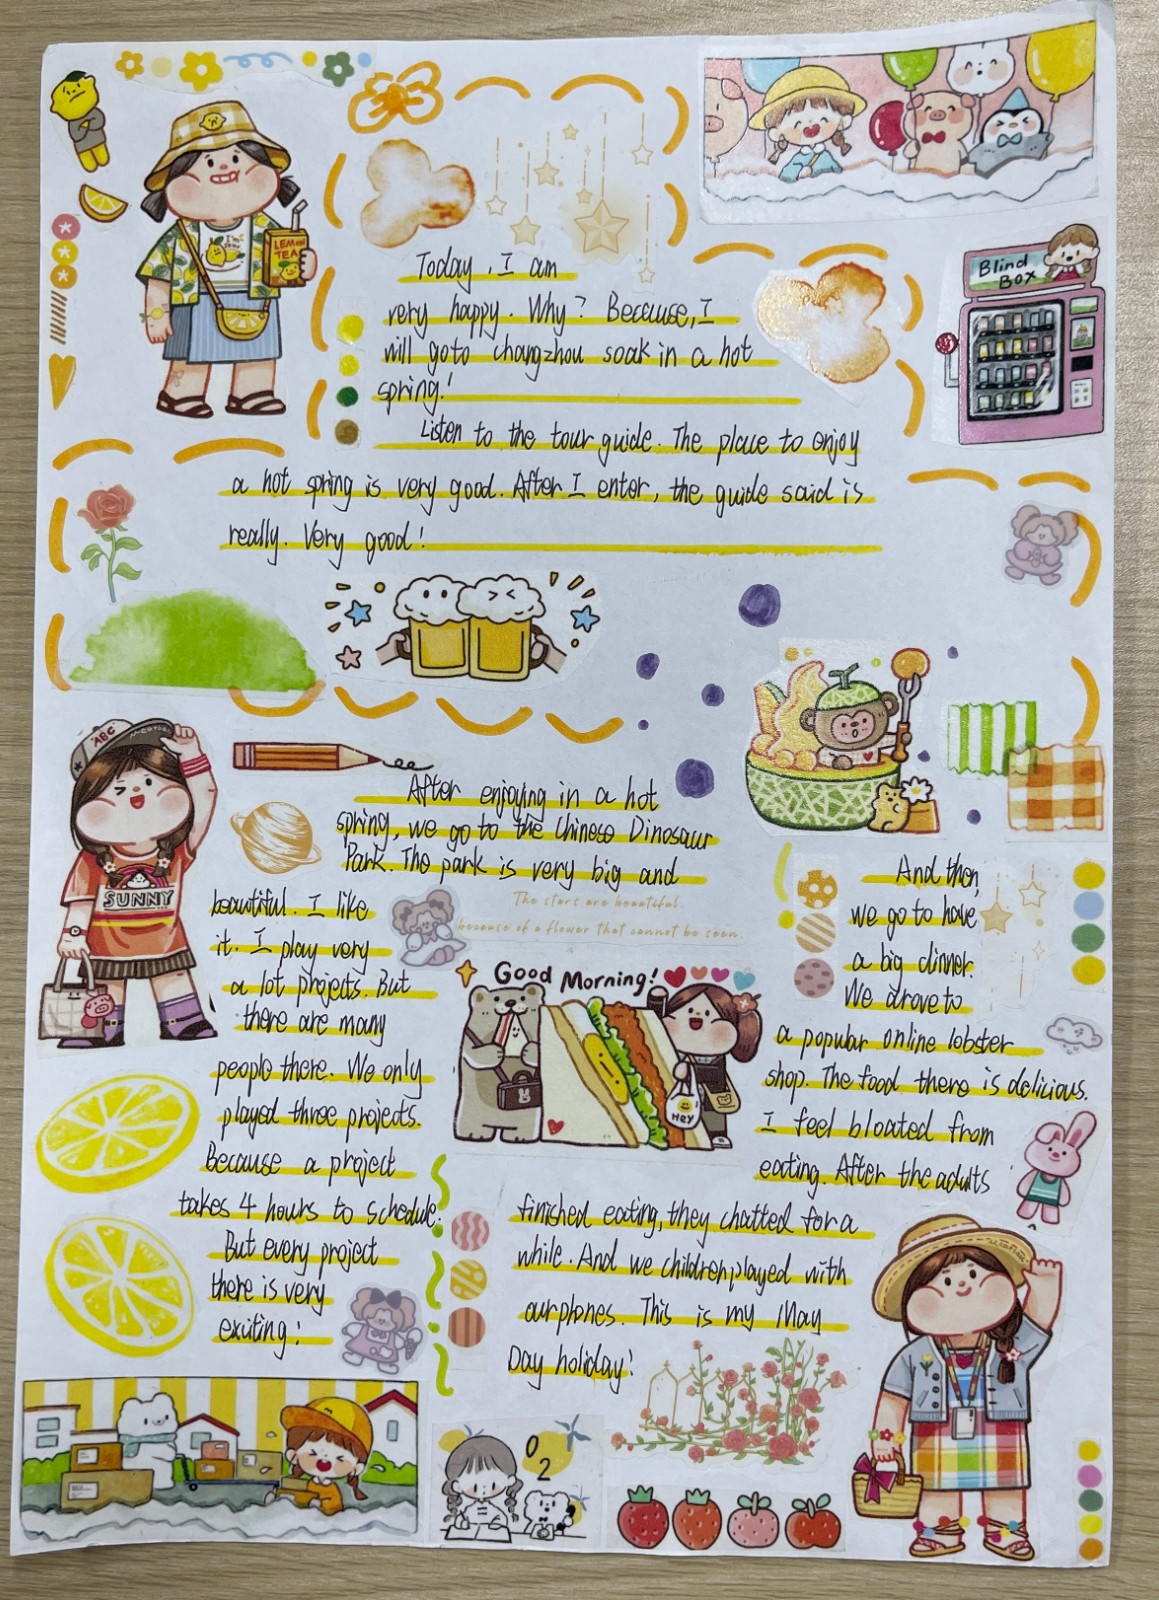 LEMON
TEA
Blind
Box
Today, I am
very happy. Why? Because, I
will goto changzhou soak in a hot
spring!
Listen to the tour guide. The place to enjoy
a hot spring is very good. After I enter, the guide said is
really. Very good!
ABC
SUNNY
After enjoying in a hot
spring, we go to the Chinese Dinosaur
Park. The park is very big and
beautiful. I like
it. I play very
a lot projects. But
there are many
people there. We only
played three projects.
Because a project
takes 4 hours to schedule.
But every project
there is very
exciting!
The stars are beautiful.
because of a flower that cannot be seen.
Good Morning!
HEY
And then,
we go to have
a big dinner.
We drove to
a popular online lobster
shop. The food there is delicious.
I feel bloated from
eating. After the adults
finished eating, they chatted for a
while. And we children played with
our phones. This is my May
Day holiday!
0
2